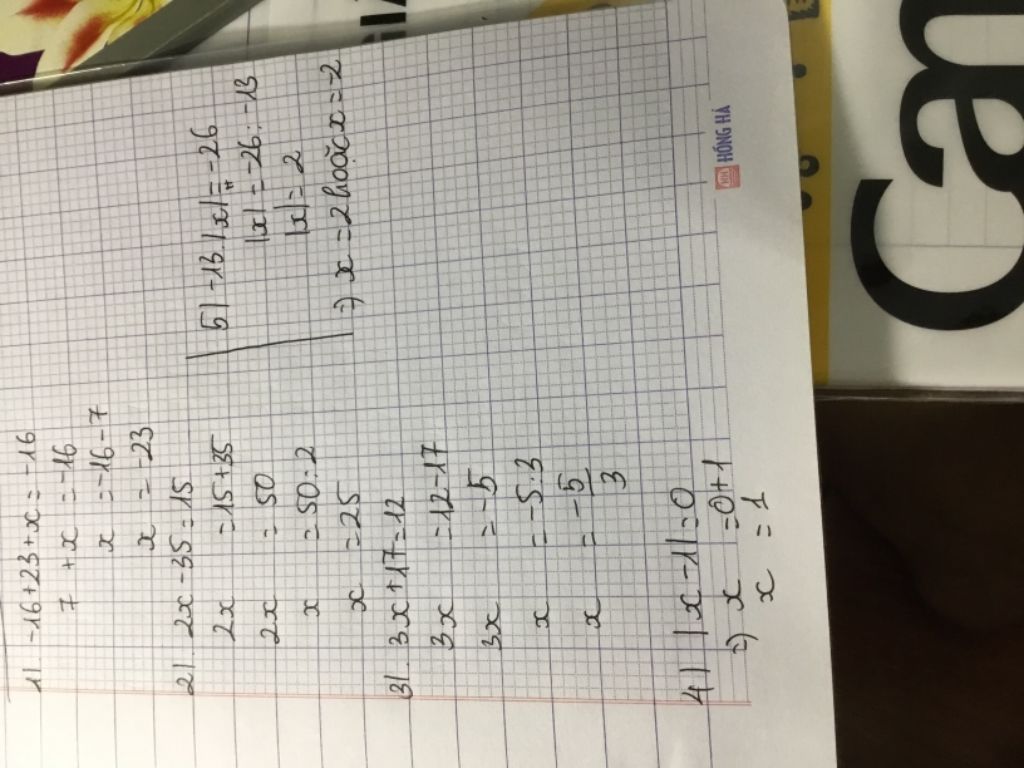 1/ -16+23+x = -16
7 +x = -16
x = -16-7
x = -23
2/. 2x-35=15
2x =15+35
2x = 50
x = 50:2
x =25
3/. 3x+17=12
3x =12-17
3x = -5
x = -5:3
x = -5/3
4/ |x-1|=0
=) x =0+1
x =1
5/ -13.|x|=-26
|x| = -26:-13
|x| = 2
=) x =2 hoặc x=-2
HỒNG HÀ
Can